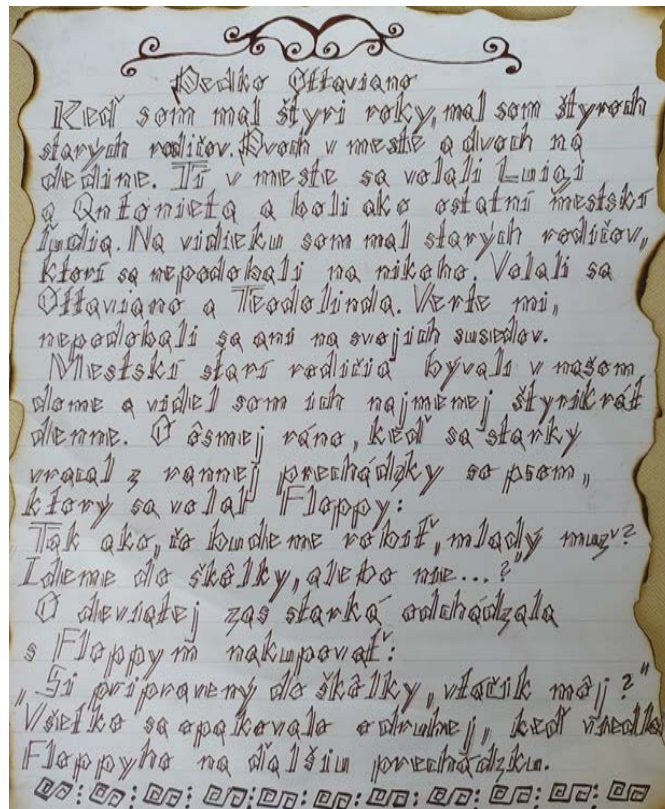 Dedko Ottaviano
Keď som mal štyri roky, mal som štyroch
starých rodičov. Dvoch v meste a dvoch na
dedine. Tí v meste sa volali Luigi
a Antonieta a boli ako ostatní mestskí
ľudia. Na vidieku som mal starých rodičov,
ktorí sa nepodobali na nikoho. Volali sa
Ottaviano a Teodolinda. Verte mi,
nepodobali sa ani na svojich susedov.
Mestskí starí rodičia bývali v našom
dome a videl som ich najmenej štyrikrát
denne. O ôsmej ráno, keď sa starký
vracal z rannej prechádzky so psom,
ktorý sa volal Floppy:
Tak ako, čo budeme robiť, mladý muž?
Ideme do škôlky, alebo nie...?"
O deviatej zas starká odchádzala
s Floppym nakupovať:
"Si pripravený do škôlky, vtáčik môj?"
Všetko sa opakovalo o druhej, keď viedla
Floppyho na ďalšiu prechádzku.